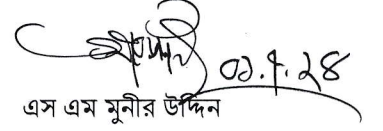 ০১.৭.২৪
এস এম মুনীর উদ্দিন